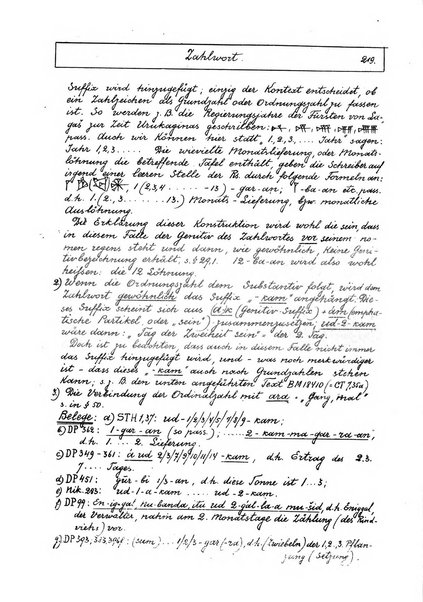 Zahlwort. 219.
Suffix wird hinzugefügt; einzig der Kontext entscheidet, ob
ein Zahlzeichen als Grundzahl oder Ordnungszahl zu fassen
ist. So werden z. B. die Regierungsjahre der Fürsten von La-
gaš zur Zeit Urukaginas geschrieben:
pass. Auch wir können hier statt „1., 2., 3. .... Jahr" sagen:
Jahr 1, 2, 3, .... Die wievielte Monatslieferung, oder Monats-
löhnung die betreffende Tafel enthält, geben die Schreiber auf
irgend einer leeren Stelle der Rs. durch folgende Formeln an:
1/(2,3,4 ...... -13) - gar-an; -ba-an etc. pass.
d.h. 1./(2., 3 .......13.) Monats-Lieferung, bzw. monatliche
Auslöhnung.
Die Erklärung dieser Konstruktion wird wohl die sein, dass
in diesem Falle der Genitiv des Zahlwortes vor seinem no-
men regens steht und dann, wie gewöhnlich, keine Geni-
tivbezeichnung erhält, s. § 29,1. 12-ba-an wird also wohl
heißen: die 12 Löhnung.
2) Wenn die Ordnungszahl dem Substantiv folgt, wird dem
Zahlwort gewöhnlich das Suffix „-kam" angehängt. Die-
ses Suffix scheint sich aus (a)k (Genitiv-Suffix) + am (empha-
tische Partikel oder „sein") zusammenzusetzen; ud-2-kam
wäre dann: „Tag der Zweiheit sein" = der 2. Tag.
Doch ist zu beachten, dass auch in diesem Falle nicht immer
das Suffix hinzugefügt wird, und - was noch merkwürdiger
ist - dass dieses „-kam" auch nach Grundzahlen stehen
kann; s. z. B. den unten angeführten Text BM 18410 (= CT 7,35a)
3) Die Verbindung der Ordinalzahl mit ara, „Gang, mal"
s. in § 50.
Belege: a) STH 1,37: ud-1/2/3/4/5/7/8/9-kam;
b) DP 362: 1-gar-an (so pass.); ..... 2-kam-ma-gar-ra-an,
d.h. 1. .... 2. Lieferung.
c) DP 349-361: à ud 2/3/7/9/10/11/14-kam, d.h. Ertrag des 2. 3.
7. .... Tages.
d) DP 451: gúr-bi 1/3-an, d.h. diese Tonne ist 1...3;
e) Nik. 283: ud-1-a-kam .... ud-2-kam,
f) DP 99: En-ig-gal nu-banda, itu ud 2-gal-la-a mu-šid, d.h. Eniggal,
der Verwalter, nahm am 2. Monatstage die Zählung (des Rind-
viehs) vor.
g) DP 393, 394: (sum) ... 1/2/3-gar (-ra), d.h. (Zwiebeln) der 1., 2., 3. Pflan-
zung (Setzung).